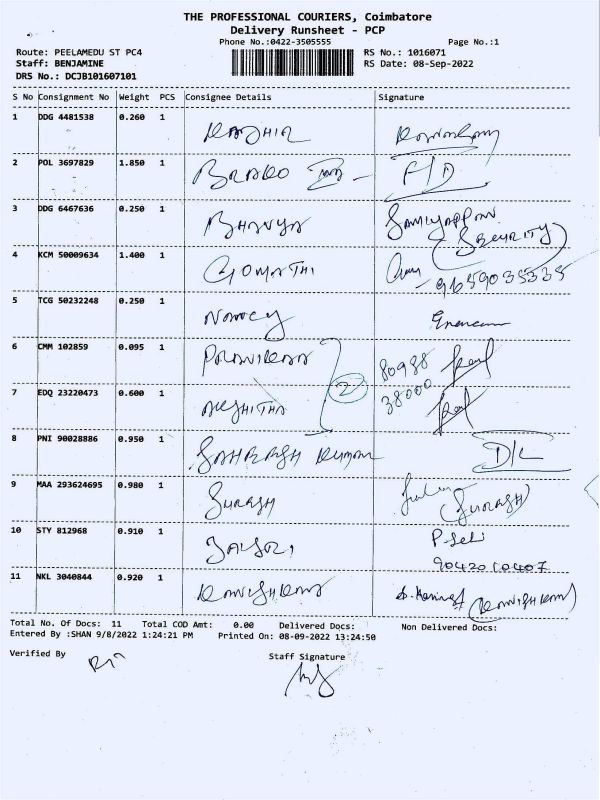 THE PROFESSIONAL COURIERS, Coimbatore
Delivery Runsheet - PCP
Phone No.:0422-3505555 Page No.:1
Route: PEELAMEDU ST PC4 RS No.: 1016071
Staff: BENJAMINE RS Date: 08-Sep-2022
DRS No.: DCJB101607101
S No Consignment No Weight PCS Consignee Details Signature
1 DDG 4481538 0.260 1
2 POL 3697829 1.850 1 F/D
3 DDG 6467636 0.250 1 BHAVYA SAMIYAPPAN
(SECURITY)
4 KCM 50009634 1.400 1 GOMATHI 9659035335
5 TCG 50232248 0.250 1 NANCY
6 CMM 102859 0.095 1 80988
7 EDQ 23220473 0.600 1 AKSHITHA 2 38000
8 PNI 90028886 0.950 1 KUMAR D/L
9 MAA 293624695 0.980 1 SURESH (SURESH)
10 STY 812968 0.910 1
9042010407
11 NKL 3040844 0.920 1
Total No. Of Docs: 11 Total COD Amt: 0.00 Delivered Docs: Non Delivered Docs:
Entered By :SHAN 9/8/2022 1:24:21 PM Printed On: 08-09-2022 13:24:50
Verified By Staff Signature